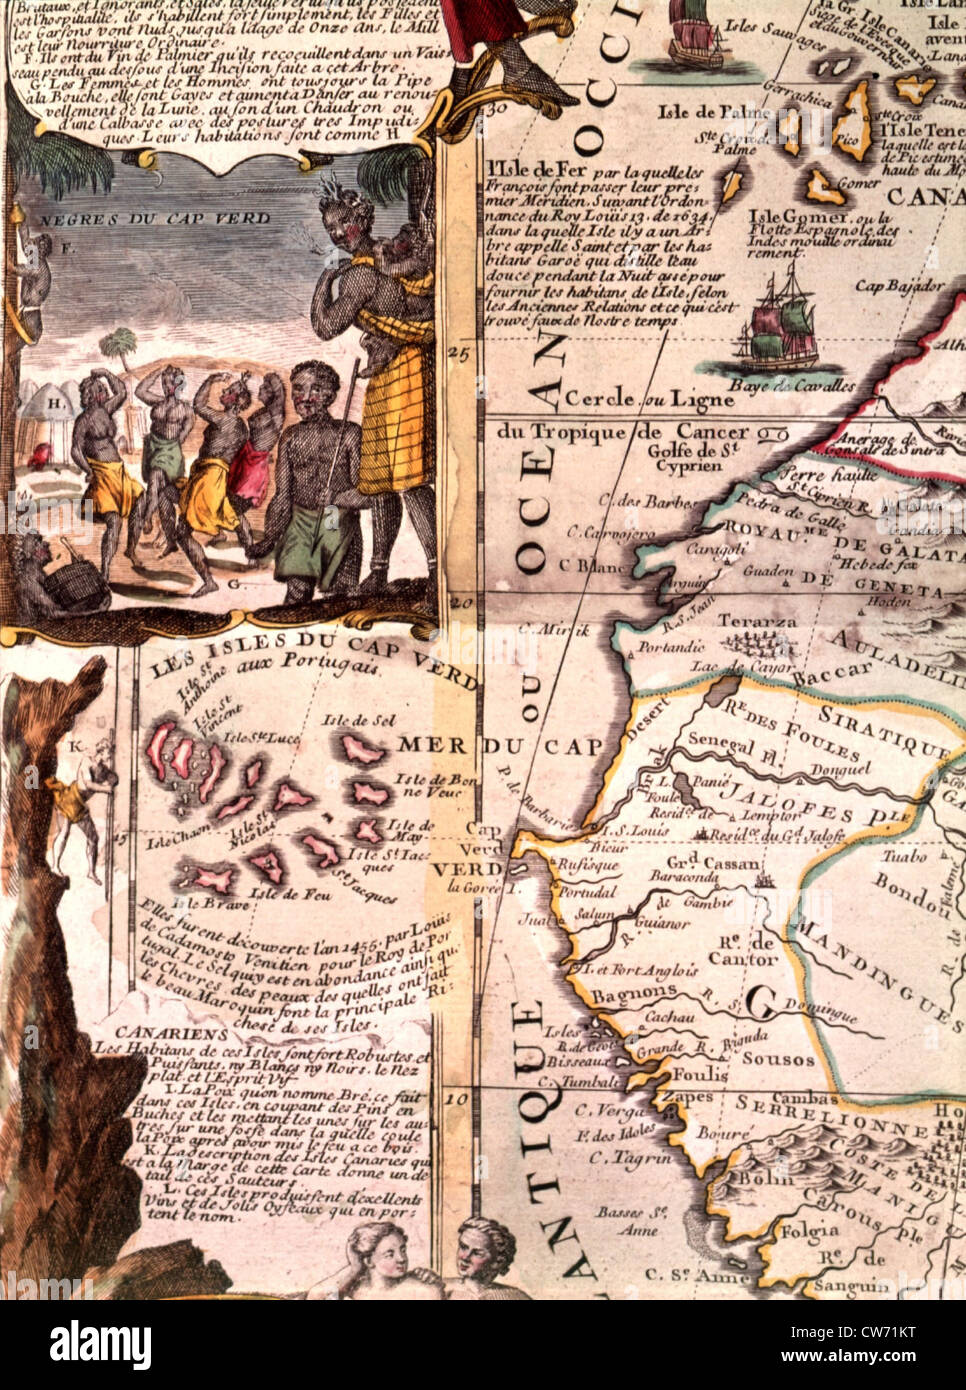 Brutaux, et Ignorants, et Sales, la seule Vertu qu'ils possedent
est l'hospitalité, ils s'habillent fort simplement, les Filles et
les Garsons vont Nuds jusqu'a l'âage de Onze Ans, le Mill
est leur Nourriture Ordinaire.
F. Ils ont du Vin de Palmier qu'ils recoeuillent dans un Vais
seau pendu au dessous d'une Incision faite a cet Arbre.
G. Les Femmes et les Hommes, ont tousjours la Pipe
à la Bouche, elle sont Gayes et aument a Danser au renou
vellement de la Lune, au son d'un Chaudron ou
d'une Calbasse avec des postures tres Impudi
ques. Leurs habitations sont comme H
NEGRES DU CAP VERD
F.
H.
G.
LES ISLES DU CAP VERD
aux Portugais.
Isle St.
Anthoine
Isle St.
Vincent
Isle Ste Luce
Isle de Sel
Isle de Bon
ne Veue
Isle de
May
Isle St Iacques
St Jacques
Isle Chaon
Isle St.
Nicolas
Isle Brave
Isle de Feu
K.
15
Elles furent découverte l'an 1456. par Louis
de Cadamosto Venitien pour le Roy de Por
tugal. Le Sel qui y est en abondance ainsi que
les Chevres, des peaux des quelles ont fait
le beau Maroquin font la principale Ri-
chese de ses Isles.
CANARIENS
Les Habitans de ces Isles sont fort Robustes, et
Puissants, ny Blancs ny Noirs, le Nez
plat, et l'Esprit Vif
I. La Poix qu'on nomme Bré, ce fait
dans ces Isles, en coupant des Pins en
Buches et les mettant les unes sur les au-
tres sur une fosse dans la quelle coule
la Poix apres avoir mis le feu a ce bois.
K. La description des Isles Canaries qui
est a la Marge de cette Carte donne un de
tail de ces Sauteurs.
L. Ces Isles produissent d'exellents
Vins et de Jolis Oyseaux qui en por-
tent le nom.
30
25
20
10
OCEAN OCCI
OU
ANTIQUE
MER DU CAP
VERD
Isles Sauvages
Gr. Isle Canarie
Siege de l'Eveque
et du Gouverneur
Isle
avent
Isle de Palme
Ste Croix de
Palme
Gerrachica
Pico
Ste Croix
l'Isle Tene
la quelle est l
de Pic estimé
haute du Mo
Gomer
CANA
l'Isle de Fer par la quelle les
François font passer leur pre-
mier Meridien, Suivant l'Ordon-
nance du Roy Loüis 13. de 1634.
dans la quelle Isle il y a un Ar-
bre appellé Saint et par les ha-
bitans Garoé qui distille l'eau
douce pendant la Nuit assé pour
fournir les habitans de l'Isle, selon
les Anciennes Relations et ce qui c'est
trouvé faux de Nostre temps.
Isle Gomer, ou la
Flotte Espagnole des
Indes mouille ordinai
rement.
Cap Bajador
Baye de Cavalles
Cercle ou Ligne
du Tropique de Cancer
Golfe de St.
Cyprien
Anerage de
Gonsale de Sintra
Terre haulte
St. Cyprien R.
Pedra de Galle
C. des Barbes
C. Carvojero
C Blanc
ROYAUME DE GALATA
DE GENETA
Caragoli
Guaden
Hebede fex
Hoden
Arguin
R. S. Jean
C. Mirik
Portandic
Terarza
Lac de Cayor
Baccar
AULADELIN
Desert
SIRATIQUE
RE DES FOULES
Senegal Fl.
Donquel
Panié
L.
Foule
Resid.ce de
Lemptor
JALOFES Ple
P. de Barbarie
I. S. Louis
Resid.ce du Gd Jalofe
Cap
Verd
la Gorée I.
Bieur
Rufisque
Portudal
Jual
Grd Cassan
Baraconda
R. de Gambie
Salum
Guianor
Tuabo
Bondou
R. de Falemé
MANDINGUES
Re. de
Cantor
I. et Fort Anglois
Bagnons
G
R. St. Domingue
Cachau
Isles
Bisseaux
Grande R.
Biguda
Sousos
Foulis
C. Tumbali
Zapes
Cambas
C. Verga
I. des Idoles
C. Tagrin
Bouré
SERRELIONNE
COSTE DE
MANIGU
Bolin
Carous Ple
Basses Ste.
Anne
Folgia
C. Ste Anne
Re. de
Sanguin
alamy
Image ID: CW71KT
www.alamy.com